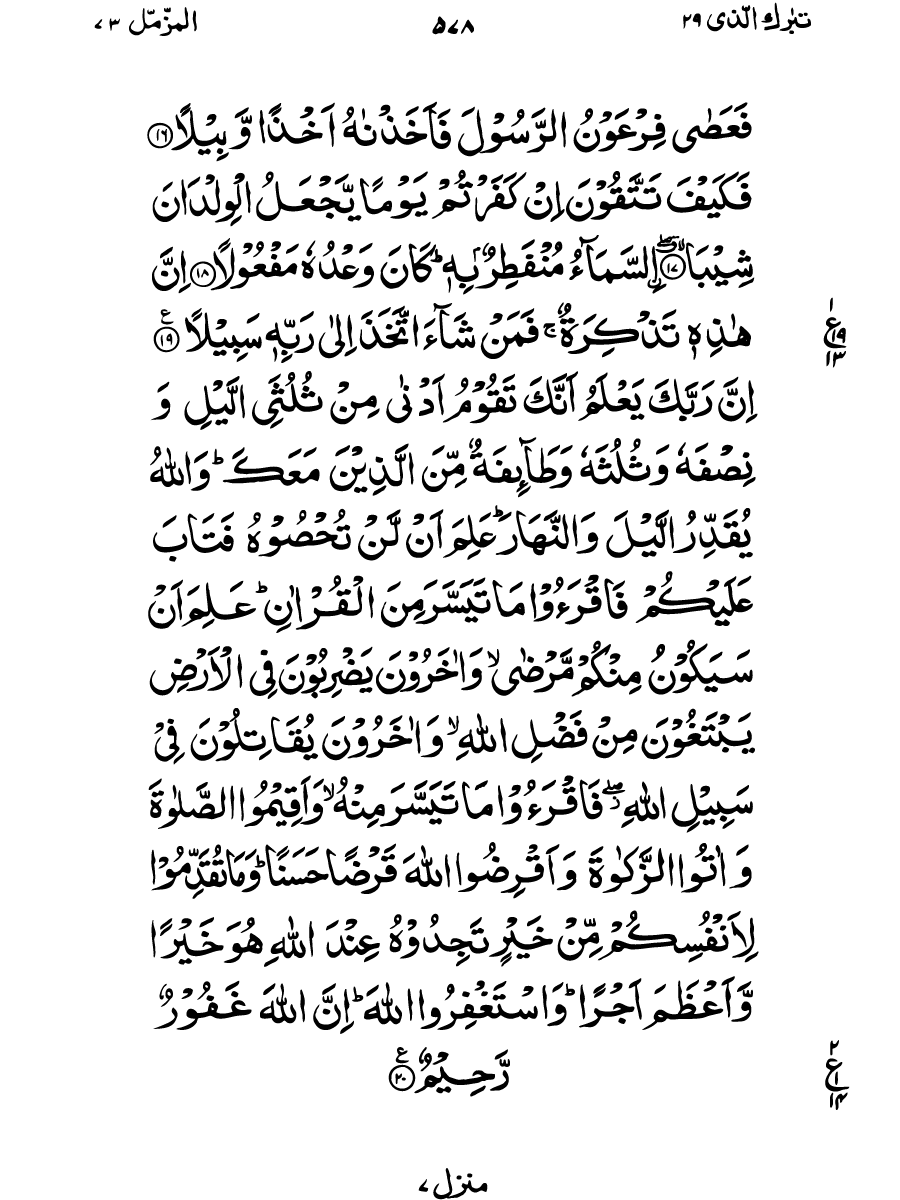 تبٰرك الّذى ٢٩ ٥٧٨ المزّمّل ٧٣
فَعَصٰى فِرْعَوْنُ الرَّسُوْلَ فَاَخَذْنٰهُ اَخْذًا وَّبِيْلًا ۝١٦
فَكَيْفَ تَتَّقُوْنَ اِنْ كَفَرْتُمْ يَوْمًا يَّجْعَلُ الْوِلْدَانَ
شِيْبَاۨ ۝١٧ اِۨلسَّمَآءُ مُنْفَطِرٌۢ بِهٖ ؕ كَانَ وَعْدُهٗ مَفْعُوْلًا ۝١٨ اِنَّ
هٰذِهٖ تَذْكِرَةٌ ۚ فَمَنْ شَآءَ اتَّخَذَ اِلٰى رَبِّهٖ سَبِيْلًا ۝١٩ ع
١ ع ١٩ ١٣
اِنَّ رَبَّكَ يَعْلَمُ اَنَّكَ تَقُوْمُ اَدْنٰى مِنْ ثُلُثَىِ الَّيْلِ وَ
نِصْفَهٗ وَثُلُثَهٗ وَطَآئِفَةٌ مِّنَ الَّذِيْنَ مَعَكَ ؕ وَاللّٰهُ
يُقَدِّرُ الَّيْلَ وَالنَّهَارَ ؕ عَلِمَ اَنْ لَّنْ تُحْصُوْهُ فَتَابَ
عَلَيْكُمْ فَاقْرَءُوْا مَا تَيَسَّرَ مِنَ الْقُرْاٰنِ ؕ عَلِمَ اَنْ
سَيَكُوْنُ مِنْكُمْ مَّرْضٰى ۙ وَاٰخَرُوْنَ يَضْرِبُوْنَ فِى الْاَرْضِ
يَبْتَغُوْنَ مِنْ فَضْلِ اللّٰهِ ۙ وَاٰخَرُوْنَ يُقَاتِلُوْنَ فِىْ
سَبِيْلِ اللّٰهِ ۖ فَاقْرَءُوْا مَا تَيَسَّرَ مِنْهُ ۙ وَاَقِيْمُوا الصَّلٰوةَ
وَاٰتُوا الزَّكٰوةَ وَاَقْرِضُوا اللّٰهَ قَرْضًا حَسَنًا ؕ وَمَا تُقَدِّمُوْا
لِاَنْفُسِكُمْ مِّنْ خَيْرٍ تَجِدُوْهُ عِنْدَ اللّٰهِ هُوَ خَيْرًا
وَّاَعْظَمَ اَجْرًا ؕ وَاسْتَغْفِرُوا اللّٰهَ ؕ اِنَّ اللّٰهَ غَفُوْرٌ
رَّحِيْمٌ ۝٢٠ ع
٢ ع ١ ١٤
منزل ٧